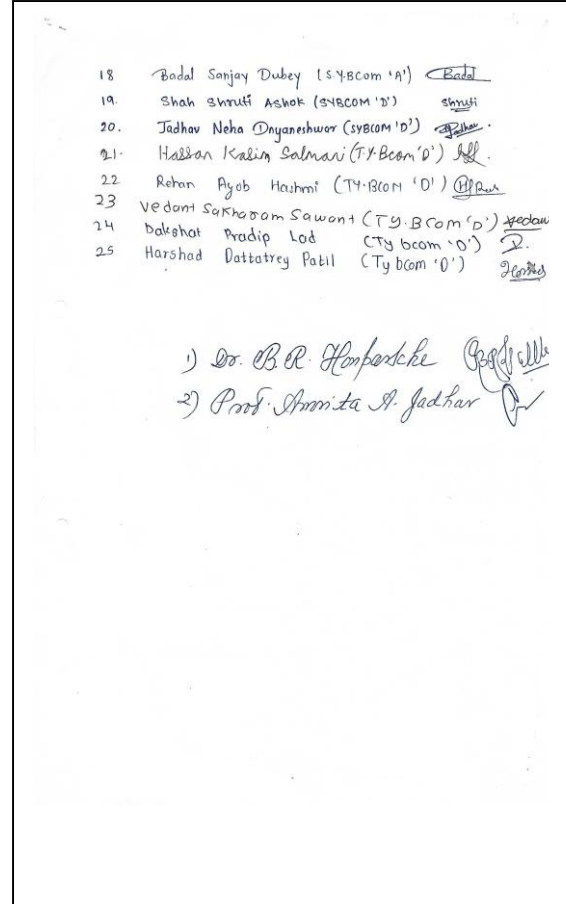 18 Badal Sanjay Dubey (S.Y.BCom 'A') Badal
19. Shah Shruti Ashok (SYBCOM 'D') Shruti
20. Jadhav Neha Dnyaneshwar (SYBCOM 'D') Jadhav.
21. Hassan Kasim Salmani (T.Y.Bcom 'D')
22 Rehan Ayob Hashmi (TY.BCOM 'D')
23 Vedant Sakharam Sawant (TY.BCom 'D') Vedant
24 Dakshat Pradip Lad (Ty bcom 'D') D.
25 Harshad Dattatrey Patil (Ty bcom 'D')
1) Dr. B.R.
2) Prof. Amrita A. Jadhav